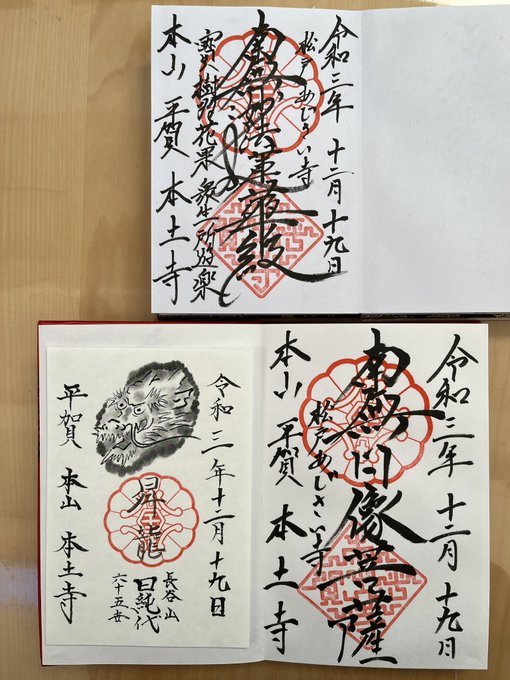 令和三年 十二月 十九日
松戸あじさい寺
南無妙法蓮華経
宝樹多花果 衆生所遊楽
本山 平賀 本土寺
令和三年 十二月 十九日
南無日像菩薩
松戸あじさい寺
本山 平賀 本土寺
令和三年十二月十九日
昇龍
長谷山
日純代
六十五世
平賀 本山 本土寺